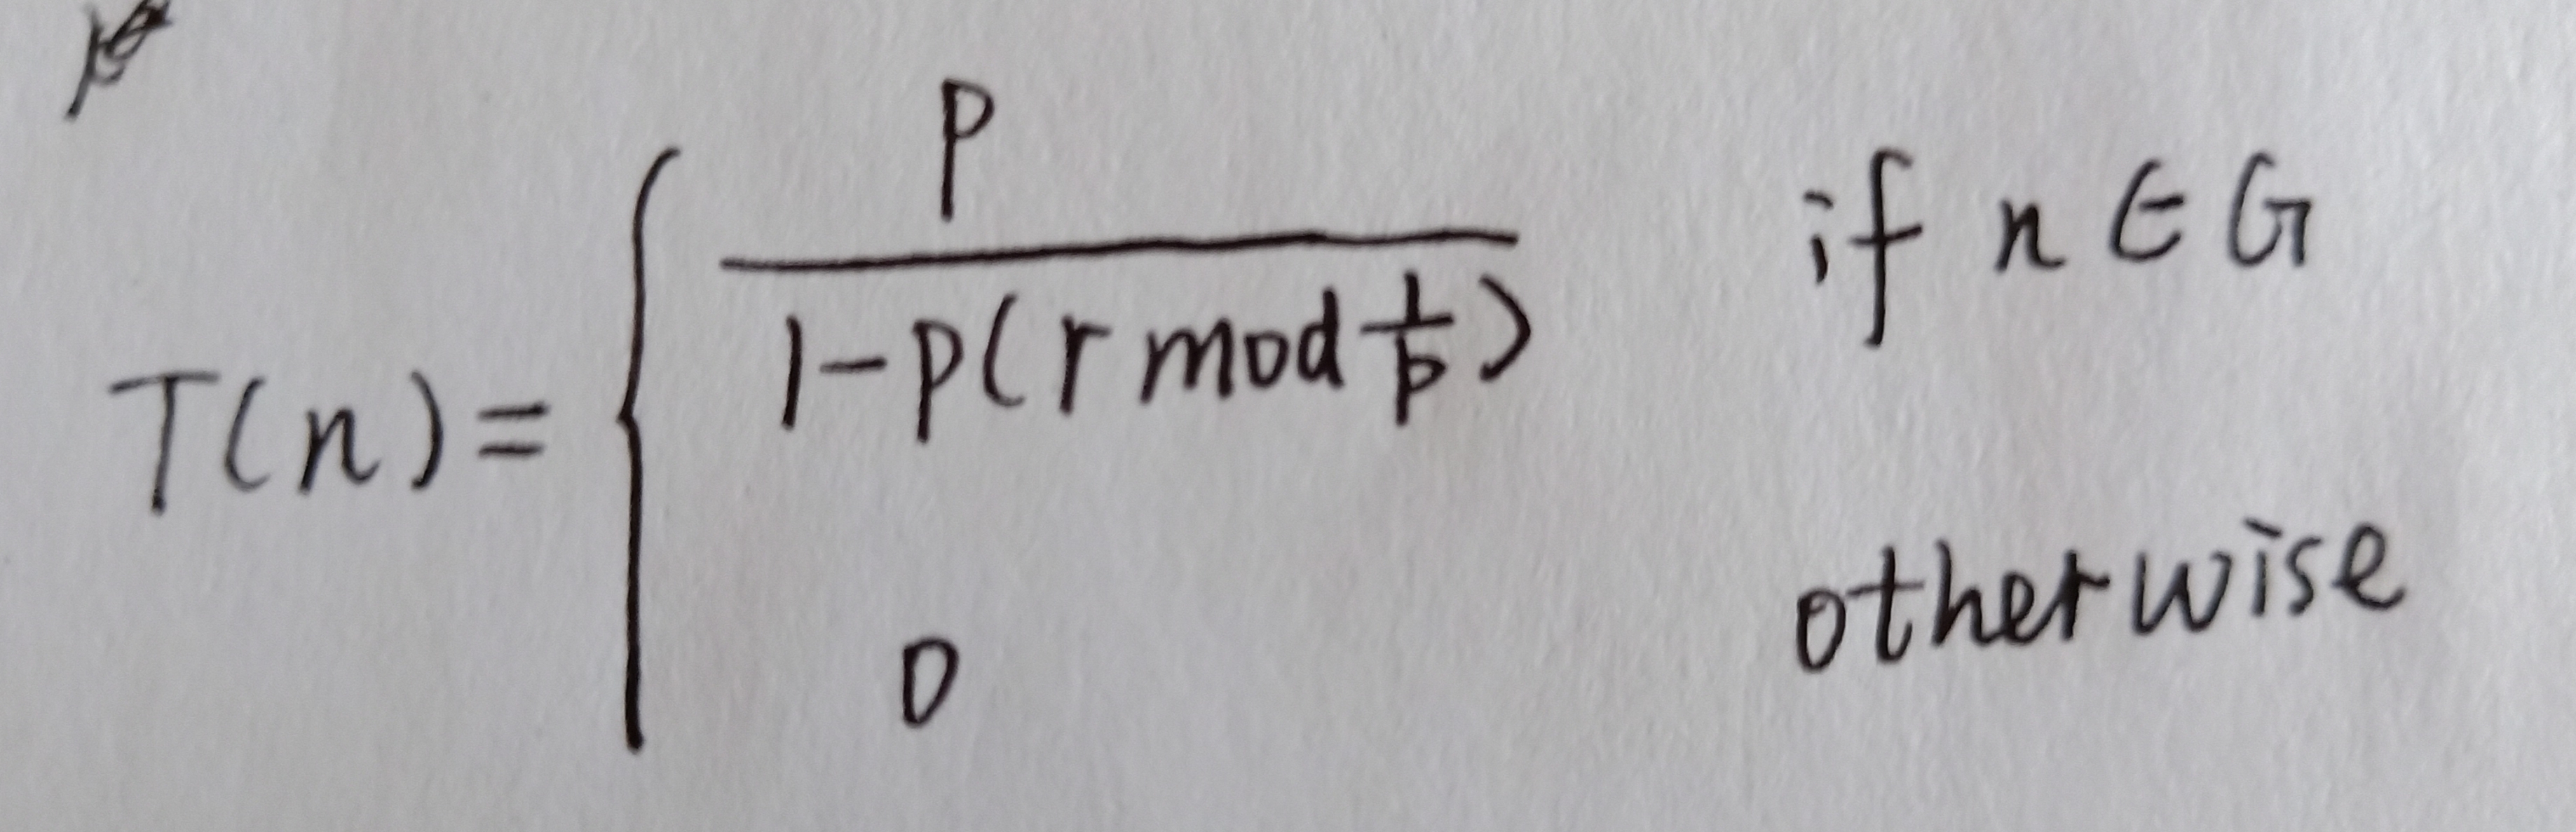 T(n) = { P / (1 - P(r mod 1/p)) if n ∈ G
0 otherwise